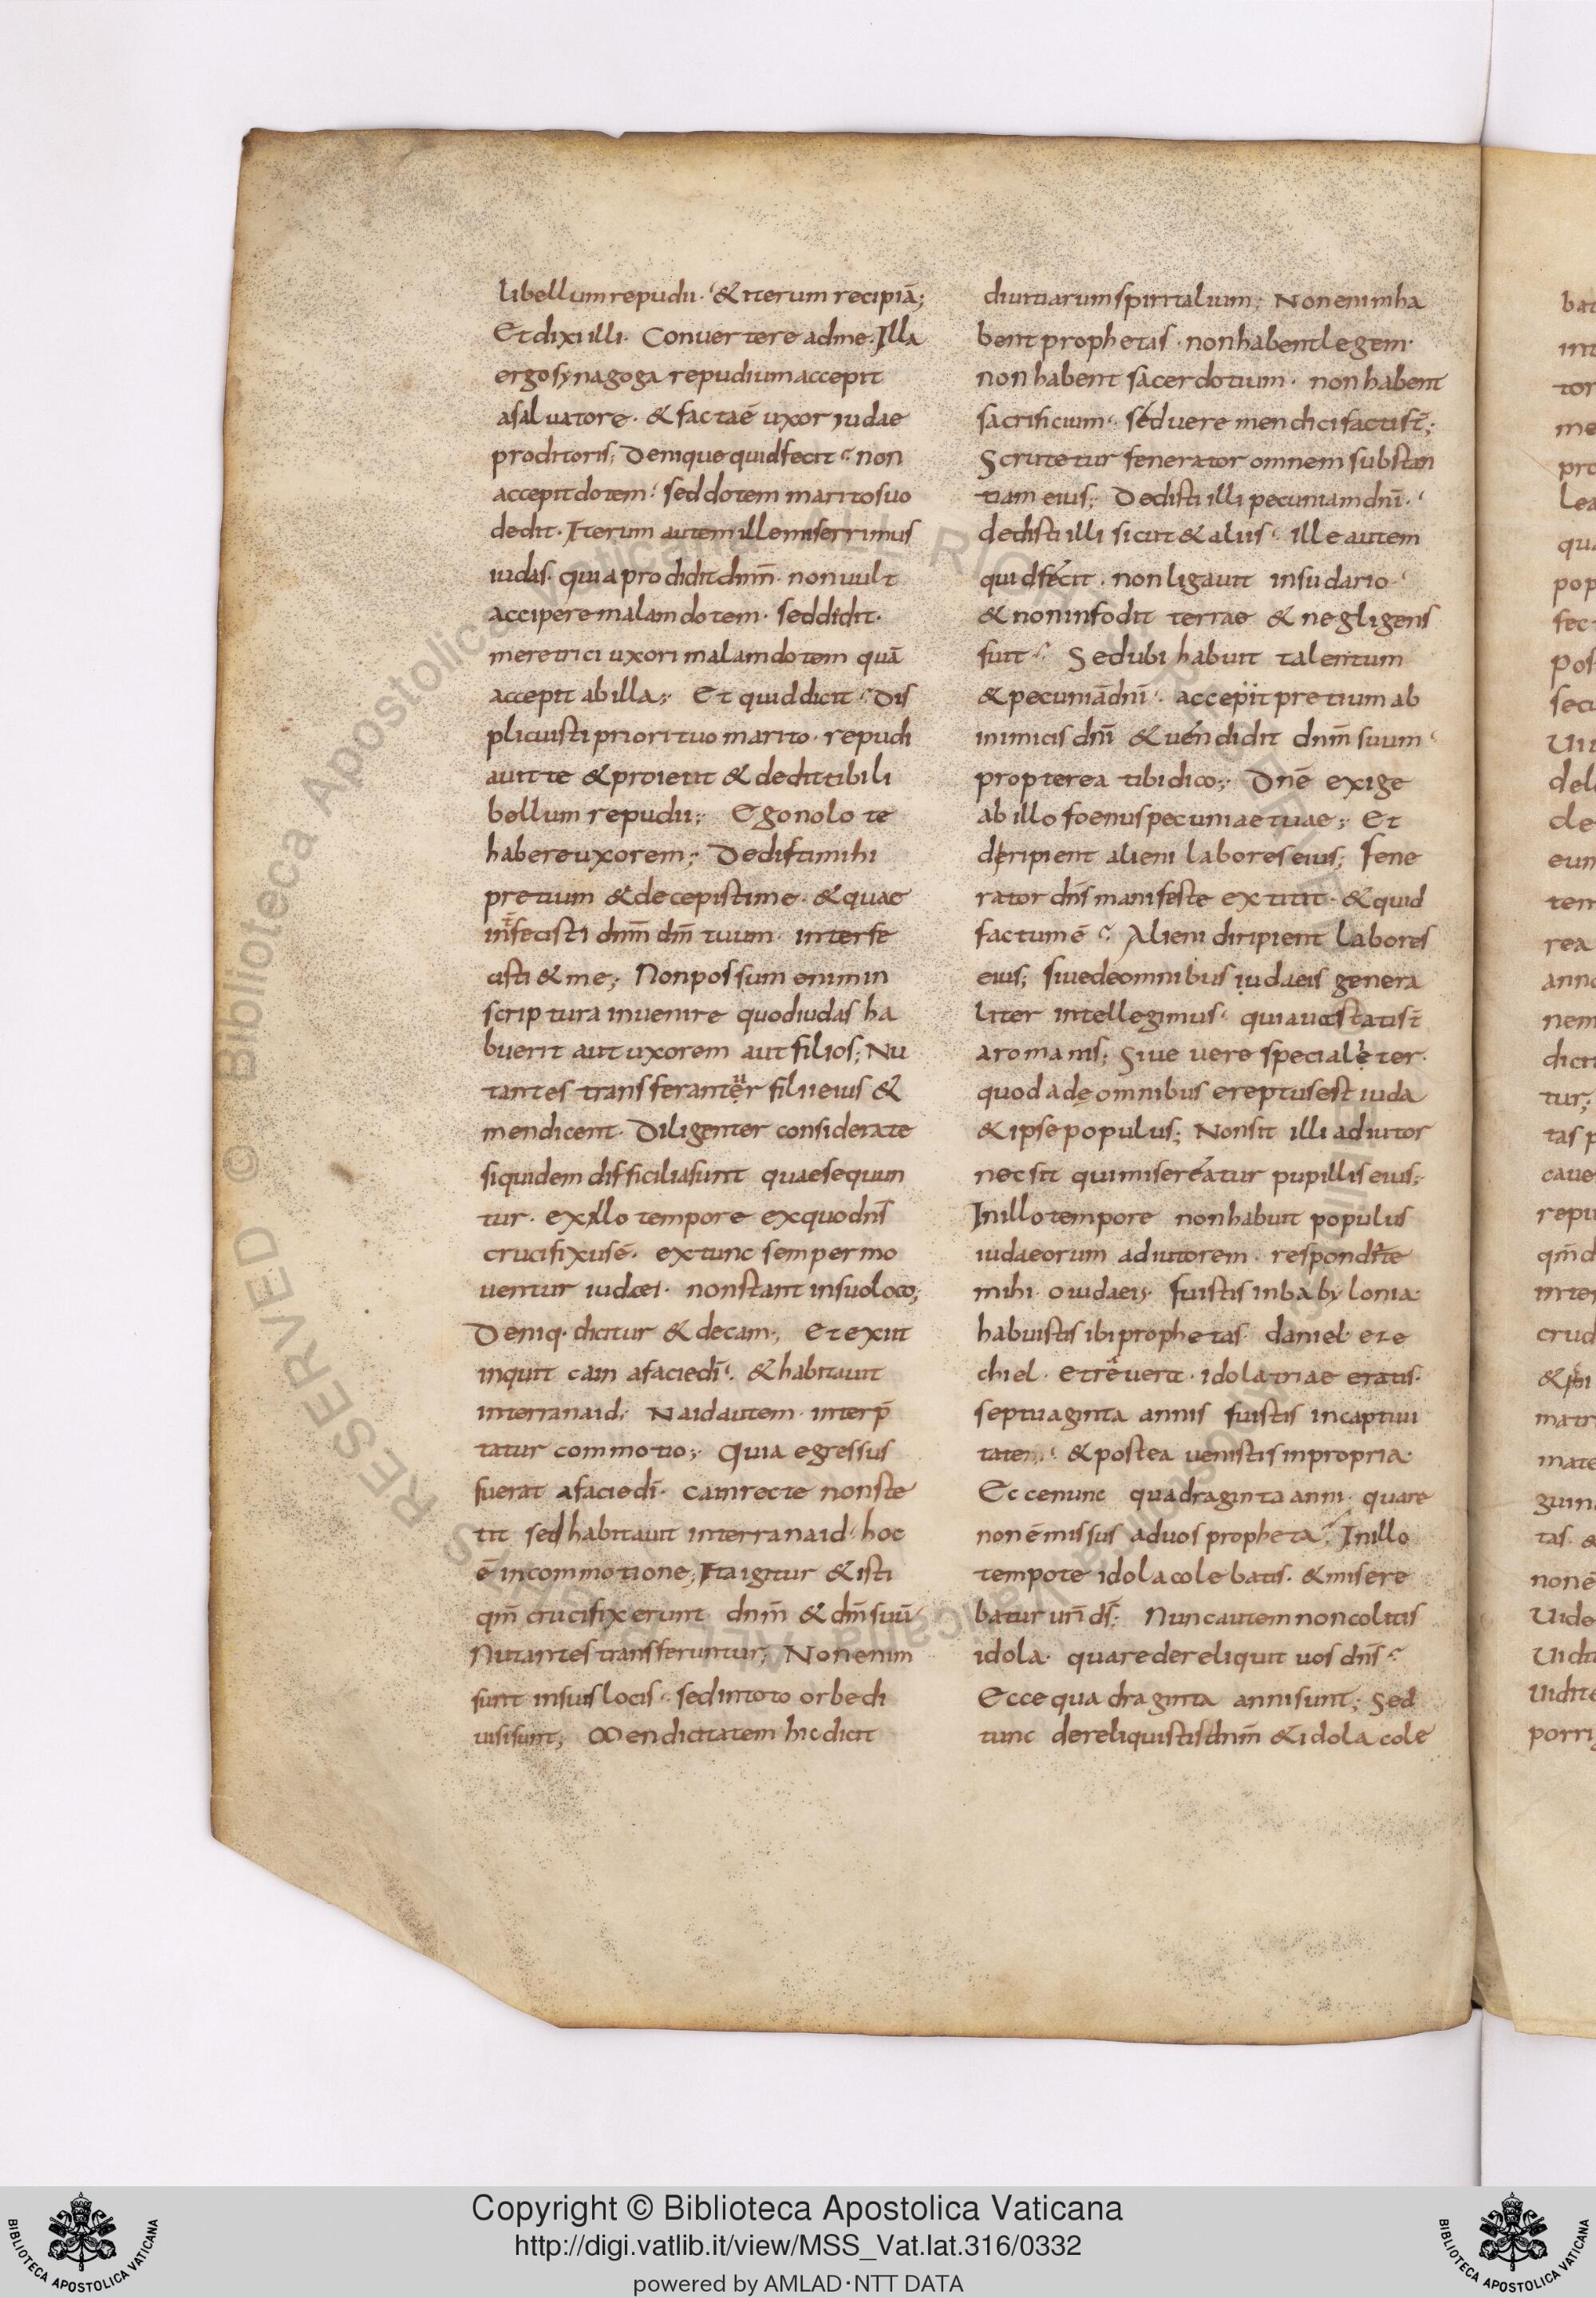 libellum repudii · & iterum recipiā;
Et dixi illi · Convertere ad me · Illa
ergo synagoga repudium accepit
a salvatore · & facta ē uxor iudae
proditoris; Denique quid fecit · non
accepit dotem · sed dotem marito suo
dedit · Iterum autem ille miserrimus
iudas · quia prodidit dnm̄ · non vult
accipere malam dotem · sed didit ·
meretrici uxori malam dotem quā
accepit ab illa; Et quid dicit · Dis
plicuisti priori tuo marito · repudi
avit te & proiecit & dedit tibi li
bellum repudii; Ego nolo te
habere uxorem; Dedisti mihi
pretium & decepisti me · & quae
int̄fecisti dnm̄ dm̄ tuum · interfe
cisti & me; Non possum enim in
scriptura invenire quod iudas ha
buerit aut uxorem aut filios; Nu
tantes transferantur filii eius &
mendicent · Diligenter considerate
siquidem difficilia sunt quae sequun
tur · ex illo tempore ex quo dns̄
crucifixus ē · ex tunc semper mo
ventur iudaei · non stant in suo loco;
Deniq· dicitur & de cain; Et exiit
inquit cain a facie dī · & habitavit
in terra naid; Naid autem · interp̄
tatur commotio; Quia egressus
fuerat a facie dī · cain recte non ste
tit sed habitavit in terra naid · hoc
ē in commotione; Ita igitur & isti
qm̄ crucifixerunt dnm̄ & dm̄ suū ·
Nutantes transferuntur; Non enim
sunt in suis locis · sed in toto orbe di
visi sunt; Mendicitatem hic dicit
divitiarum spiritalium; Non enim ha
bent prophetas · non habent legem ·
non habent sacerdotium · non habent
sacrificium · sed vere mendici facti st̄;
Scrutetur fenerator omnem substan
tiam eius; Dedisti illi pecuniam dnī ·
dedisti illi sicut & aliis · ille autem
quid fecit · non ligavit in sudario ·
& non infodit terrae & negligens
fuit · Sed ubi habuit talentum
& pecuniā dnī · accepit pretium ab
inimicis dnī & vendidit dnm̄ suum ·
propterea tibi dico; Dnē exige
ab illo foenus pecuniae tuae; Et
diripient alieni labores eius; fene
rator dns̄ manifeste extitit · & quid
factum ē · Alieni diripient labores
eius; sive de omnibus iudaeis genera
liter intellegimus · quia vastati st̄
a romanis; Sive vere specialiter ·
quod ade omnibus ereptus est iuda
& ipse populus; Non sit illi adiutor
nec sit qui misereatur pupillis eius;
In illo tempore non habuit populus
iudaeorum adiutorem · respondete
mihi · o iudaei · fuistis in babylonia ·
habuistis ibi prophetas · daniel · eze
chiel · et revera · idolatriae eratis ·
septuaginta annis fuistis in captivi
tatem · & postea venistis in propria ·
Ecce nunc quadraginta anni · quare
non ē missus ad vos propheta · In illo
tempote idola colebatis · & misere
batur vr̄i ds̄; Nunc autem non colitis
idola · quare dereliquit vos dns̄ ·
Ecce quadraginta anni sunt; Sed
tunc dereliquistis dnm̄ & idola cole
Copyright © Biblioteca Apostolica Vaticana
http://digi.vatlib.it/view/MSS_Vat.lat.316/0332
powered by AMLAD·NTT DATA
BIBLIOTECA APOSTOLICA VATICANA
BIBLIOTECA APOSTOLICA VATICANA